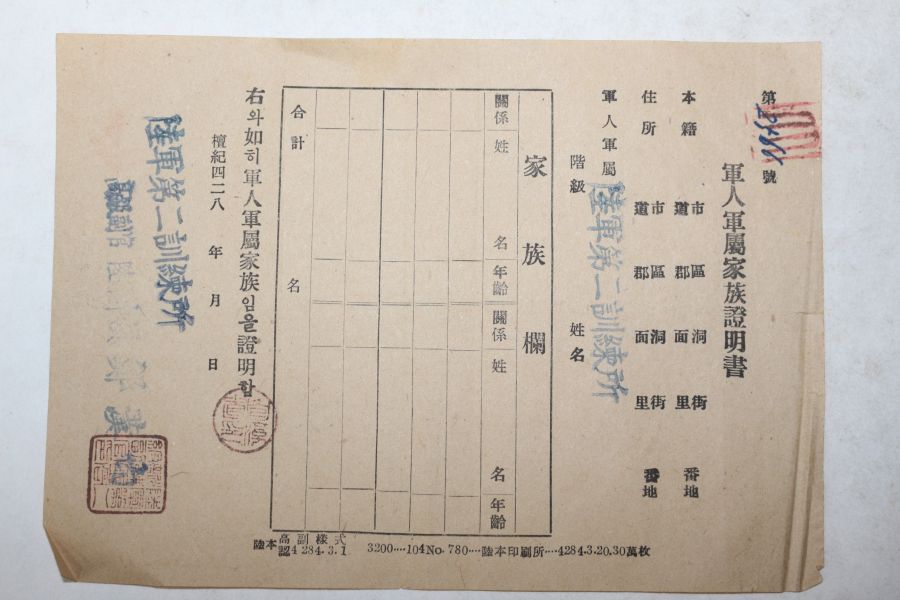 第 號
軍人軍屬家族證明書
本籍 市道 區郡 洞面 街里 番地
住所 市道 區郡 洞面 街里 番地
軍人軍屬 陸軍第二訓練所
階級 姓名
家族欄
關係 姓名 年齡 關係 姓名 年齡
合計 名
右와如히軍人軍屬家族임을證明함
檀紀四二八 年 月 日
陸軍第二訓練所
陸本 高副樣式
認4284.3.1 3200····104No. 780····陸本印刷所····4284.3.20.30萬枚